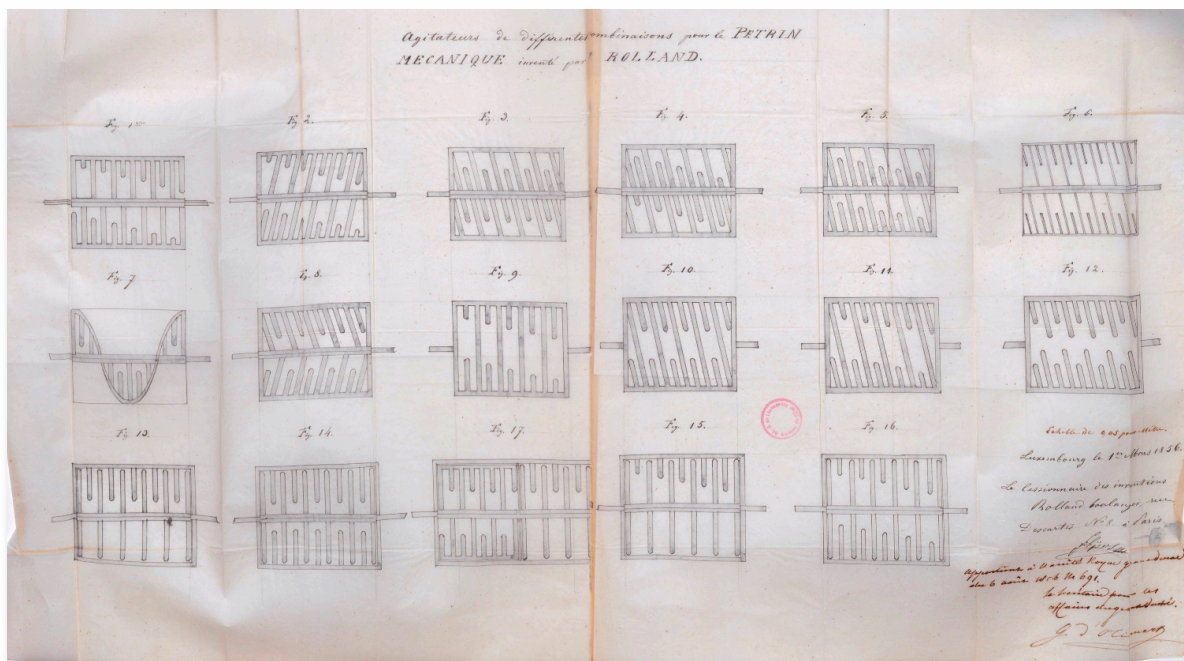 Agitateurs de différentes combinaisons pour le PETRIN
MECANIQUE inventé par ROLLAND.
Fig. 1re
Fig. 2.
Fig. 3.
Fig. 4.
Fig. 5.
Fig. 6.
Fig. 7
Fig. 8.
Fig. 9
Fig. 10.
Fig. 11.
Fig. 12.
Fig. 13.
Fig. 14.
Fig. 17.
Fig. 15.
Fig. 16.
Echelle de 0,05 par mètre.
Luxembourg le 1er Mars 1856.
Le Cessionnaire des inventions
Rolland boulanger, rue
Descartes, No 8. à Paris
à l'arrêté Royal grand ducal
No 691.
le secrétaire pour les
affaires du grand duché.